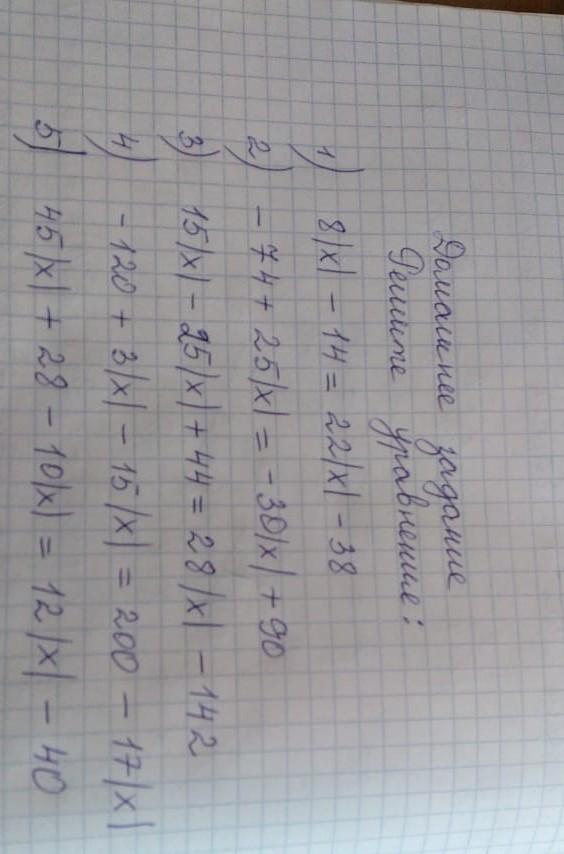 Домашнее задание
Решите уравнение:
1) 8|x| - 14 = 22|x| - 38
2) - 74 + 25|x| = - 30|x| + 90
3) 15|x| - 25|x| + 44 = 28|x| - 142
4) - 120 + 3|x| - 15|x| = 200 - 17|x|
5) 45|x| + 28 - 10|x| = 12|x| - 40